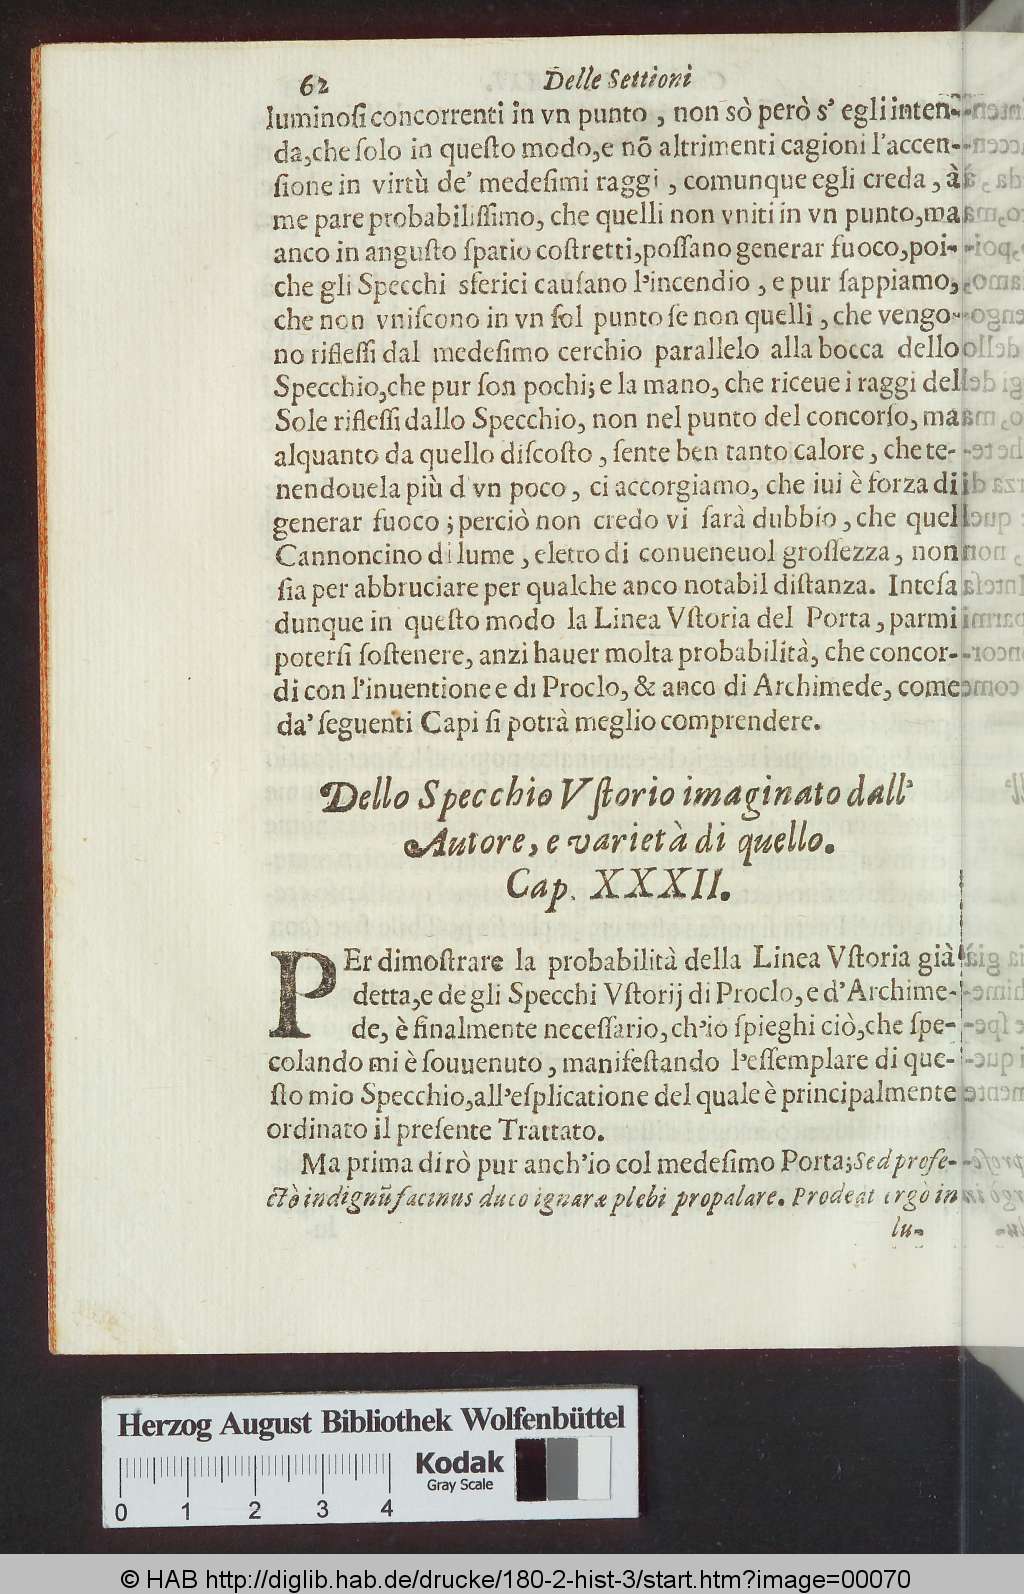 62 Delle Settioni
luminoſi concorrenti in vn punto , non sò però s' egli inten-
da,che ſolo in queſto modo,e nõ altrimenti cagioni l'accen-
ſione in virtù de' medeſimi raggi , comunque egli creda , à
me pare probabiliſſimo, che quelli non vniti in vn punto,ma
anco in anguſto ſpatio coſtretti,poſſano generar fuoco,poi-
che gli Specchi sferici cauſano l'incendio , e pur ſappiamo,
che non vniſcono in vn ſol punto ſe non quelli , che vengo-
no rifleſſi dal medeſimo cerchio parallelo alla bocca dello
Specchio,che pur ſon pochi; e la mano, che riceue i raggi del
Sole rifleſſi dallo Specchio, non nel punto del concorſo, ma
alquanto da quello diſcoſto , ſente ben tanto calore , che te-
nendouela più d vn poco , ci accorgiamo, che iui è forza di
generar fuoco ; perciò non credo vi ſarà dubbio , che quel
Cannoncino di lume , eletto di conueneuol groſſezza , non
ſia per abbruciare per qualche anco notabil diſtanza. Inteſa
dunque in queſto modo la Linea Vſtoria del Porta , parmi
poterſi ſoſtenere, anzi hauer molta probabilità, che concor-
di con l'inuentione e di Proclo, & anco di Archimede, come
da' ſeguenti Capi ſi potrà meglio comprendere.
Dello Specchio Vſtorio imaginato dall'
Autore, e varietà di quello.
Cap. XXXII.
PEr dimoſtrare la probabilità della Linea Vſtoria già
detta,e de gli Specchi Vſtorij di Proclo, e d'Archime-
de, è finalmente neceſſario, ch'io ſpieghi ciò,che ſpe-
colando mi è ſouuenuto , manifeſtando l'eſſemplare di que-
ſto mio Specchio,all'eſplicatione del quale è principalmente
ordinato il preſente Trattato.
Ma prima dirò pur anch'io col medeſimo Porta; Sed profe-
ctò indignũ facinus duco ignaræ plebi propalare. Prodeat ergò in
lu-
Herzog August Bibliothek Wolfenbüttel
Kodak
Gray Scale
0 1 2 3 4
© HAB http://diglib.hab.de/drucke/180-2-hist-3/start.htm?image=00070